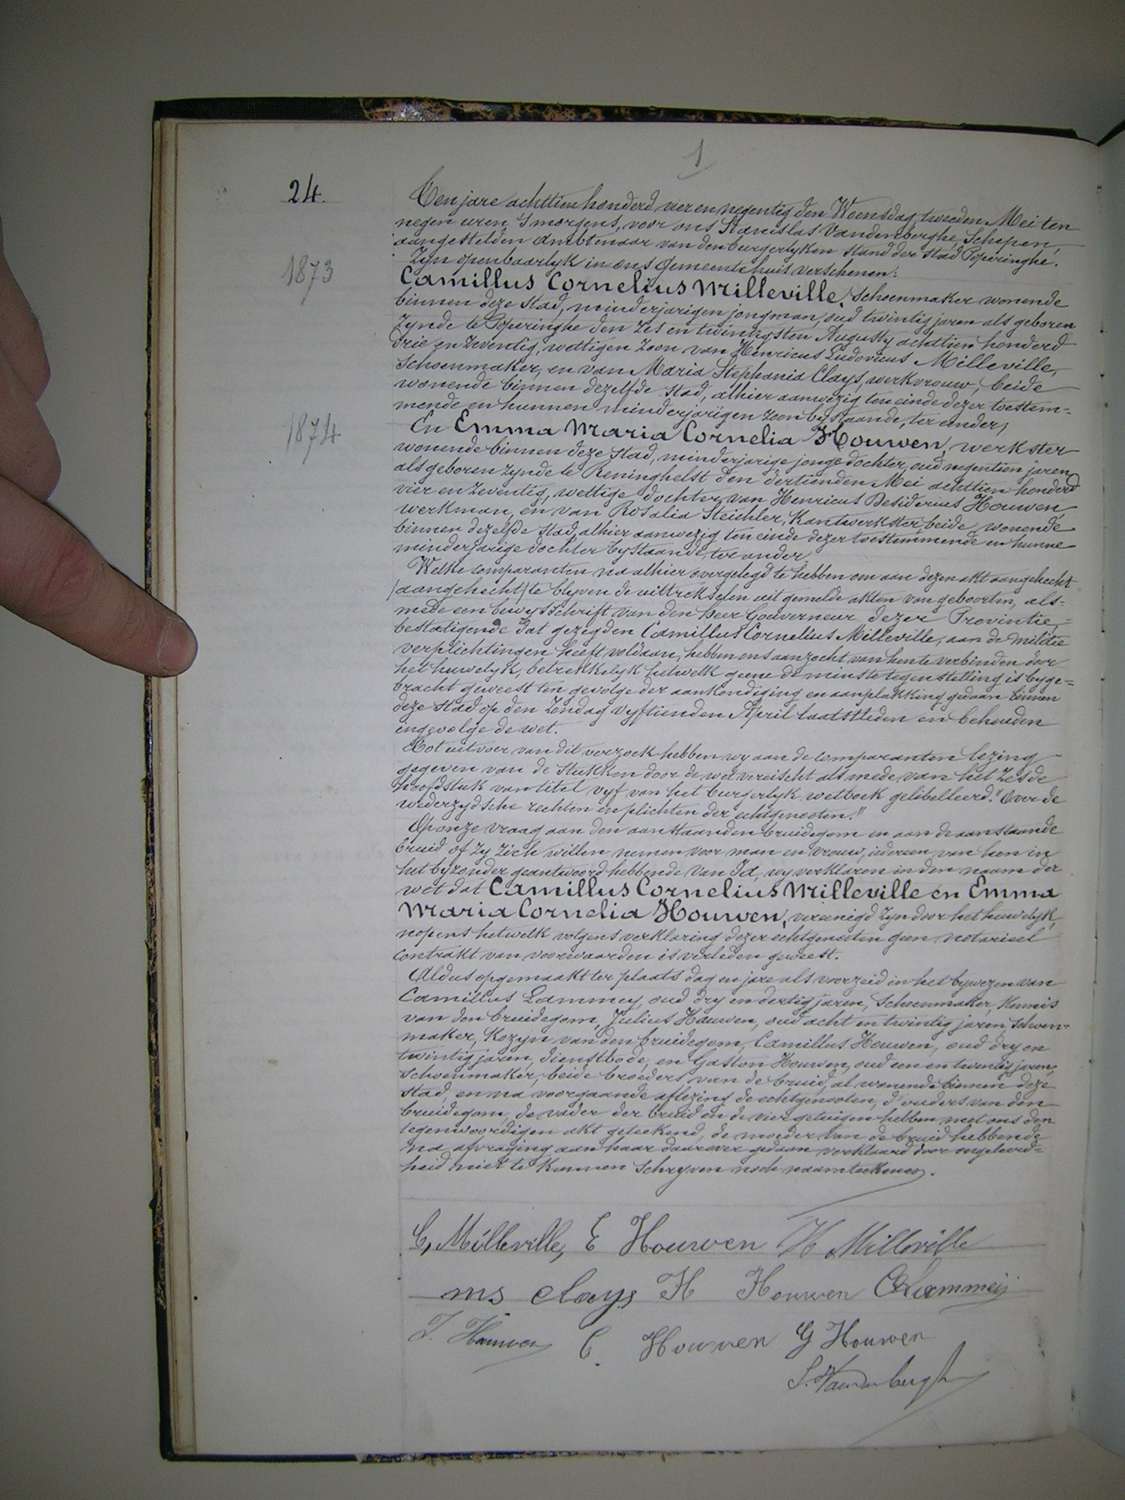 1
24.
Ten jare achttien honderd vier en negentig den Woensdag tweeden Mei ten
negen uren 's morgens, voor ons Stanislas Vandenberghe Schepen,
aangestelden ambtenaar van den burgerlyken stand der stad Poperinghe.
Zyn openbaarlyk in ons gemeentehuis verschenen:
1873
Camillus Cornelius Milleville, schoenmaker wonende
binnen deze stad, minderjarigen jongman, oud twintig jaren als geboren
zynde te Poperinghe den zes en twintigsten Augusty achttien honderd
drie en zeventig, wettigen zoon van Henricus Ludovicus Milleville,
schoenmaker, en van Maria Stephania Clays, werkvrouw, beide
wonende binnen dezelfde stad, alhier aanwezig ten einde dezer toestem=
mende en hunnen minderjarigen zoon bystaande, ter ander,
1874
En Emma Maria Cornelia Houwen, werkster
wonende binnen deze stad, minderjarige jonge dochter, oud negentien jaren
als geboren zynde te Reninghelst den dertienden Mei achttien honderd
vier en zeventig, wettige dochter van Henricus Desiderius Houwen,
werkman, en van Rosalia Steichler, Kantwerkster, beide wonende
binnen dezelfde stad, alhier aanwezig ten einde dezer toestemmende en hunne
minderjarige dochter bystaande, ter ander
Welke comparanten na alhier overgelegd te hebben om aan dezen akt aangehecht
(aangehecht) te blyven de uittrekselen uit gemelde akten van geboorten, als=
mede een bewysschrift van den Heer Gouverneur dezer Provintie,
bestatigende dat gezegden Camillus Cornelius Milleville, aan de militie
verplichtingen heeft voldaan, hebben ons aanzocht van hunte verbinden door
het huwelyk, betrekkelyk hetwelk geene de minste tegenstelling is byge=
bracht geweest ten gevolge der aankondiging en aanplakking gedaan binnen
deze stad op den Zondag vyftienden April laatstleden en behouden
ingevolge de wet.
Tot uitvoer van dit verzoek hebben wy aan de comparanten lezing
gegeven van de stukken door de wet vereischt alsmede van het zesde
hoofdstuk van titel vyf van het burgerlyk wetboek gelibelleerd: "Over de
wederzydsche rechten en plichten der echtgenooten."
Op onze vraag aan den aanstaanden bruidegom en aan de aanstaande
bruid of zy zich willen nemen voor man en vrouw, iedereen van hen in
het byzonder geantwoord hebbende van Ja, wy verklaren in den naam der
wet dat Camillus Cornelius Milleville en Emma
Maria Cornelia Houwen, vereenigd zyn door het huwelyk,
nopens hetwelk volgens verklaring dezer echtgenooten geen notarieel
contrakt van voorwaarden is verleden geweest.
Aldus opgemaakt ter plaats dag en jare als voorzeid in het bywezen van
Camillus Lammey, oud dry en dertig jaren, schoenmaker, kennis
van den bruidegom, Julius Houwen, oud acht en twintig jaren, schoen=
maker, kozyn van den bruidegom, Camillus Houwen, oud dry en
twintig jaren, dienstbode, en Gaston Houwen, oud een en twintig jaren,
schoenmaker, beide broeders van de bruid, al wonende binnen deze
stad, en na voorgaande aflezing de echtgenooten, d'ouders van den
bruidegom, de vader der bruid en de vier getuigen hebben met ons den
tegenwoordigen akt geteekend, de moeder van de bruid hebbende
na afvraging aan haar daarover gedaan verklaard door ongeleerd=
heid niet te kunnen schryven noch naamteekenen.
C, Milleville, E Houwen H Milleville
ms clays H Houwen C Lammey
J. Houwen C. Houwen G Houwen
S. Vandenberghe